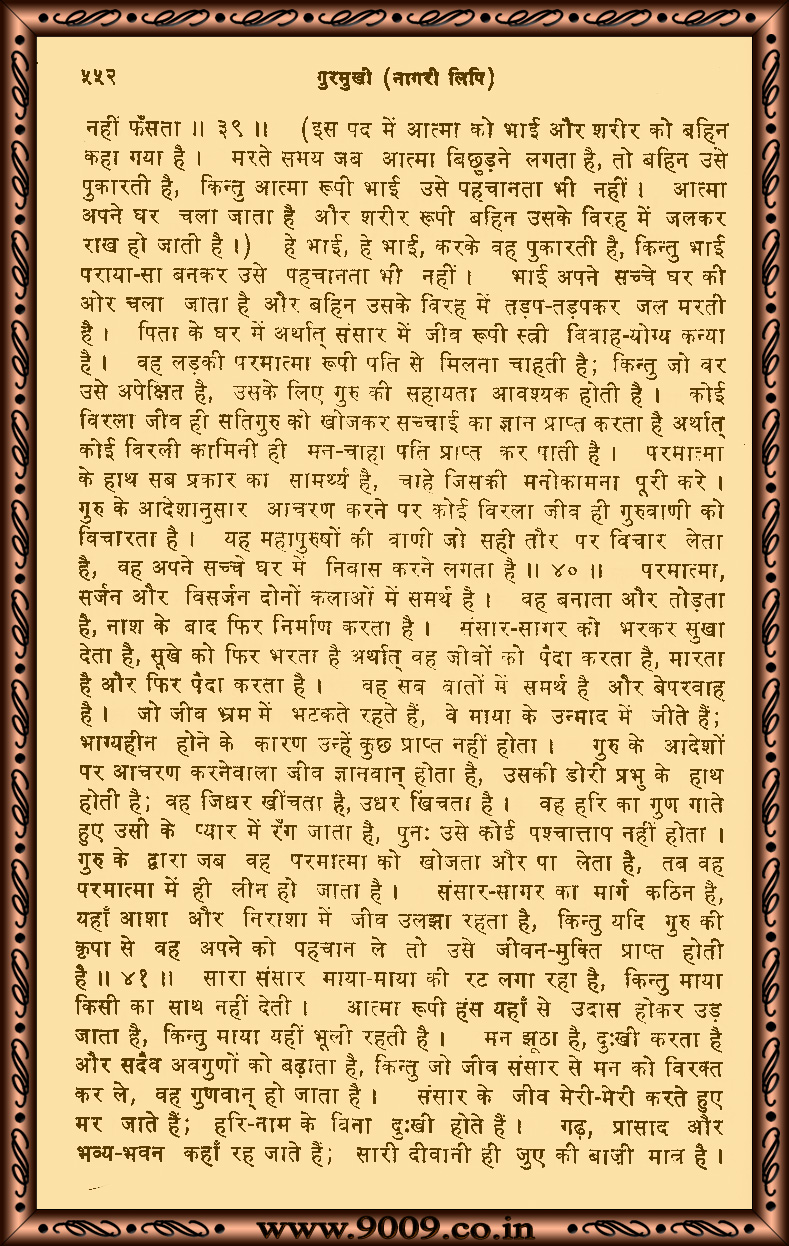 ५५२ गुरमुखी (नागरी लिपि)
नहीं फँसता ॥ ३९ ॥ (इस पद में आत्मा को भाई और शरीर को बहिन
कहा गया है । मरते समय जब आत्मा बिछुड़ने लगता है, तो बहिन उसे
पुकारती है, किन्तु आत्मा रूपी भाई उसे पहचानता भी नहीं । आत्मा
अपने घर चला जाता है और शरीर रूपी बहिन उसके विरह में जलकर
राख हो जाती है ।) हे भाई, हे भाई, करके वह पुकारती है, किन्तु भाई
पराया-सा बनकर उसे पहचानता भी नहीं । भाई अपने सच्चे घर की
ओर चला जाता है और बहिन उसके विरह में तड़प-तड़पकर जल मरती
है । पिता के घर में अर्थात् संसार में जीव रूपी स्त्री विवाह-योग्य कन्या
है । वह लड़की परमात्मा रूपी पति से मिलना चाहती है; किन्तु जो वर
उसे अपेक्षित है, उसके लिए गुरु की सहायता आवश्यक होती है । कोई
विरला जीव ही सतिगुरु को खोजकर सच्चाई का ज्ञान प्राप्त करता है अर्थात्
कोई विरली कामिनी ही मन-चाहा पति प्राप्त कर पाती है । परमात्मा
के हाथ सब प्रकार का सामर्थ्य है, चाहे जिसकी मनोकामना पूरी करे ।
गुरु के आदेशानुसार आचरण करने पर कोई विरला जीव ही गुरुवाणी को
विचारता है । यह महापुरुषों की वाणी जो सही तौर पर विचार लेता
है, वह अपने सच्चे घर में निवास करने लगता है ॥ ४० ॥ परमात्मा,
सर्जन और विसर्जन दोनों कलाओं में समर्थ है । वह बनाता और तोड़ता
है, नाश के बाद फिर निर्माण करता है । संसार-सागर को भरकर सुखा
देता है, सूखे को फिर भरता है अर्थात् वह जीवों को पैदा करता है, मारता
है और फिर पैदा करता है । वह सब बातों में समर्थ है और बेपरवाह
है । जो जीव भ्रम में भटकते रहते हैं, वे माया के उन्माद में जीते हैं;
भाग्यहीन होने के कारण उन्हें कुछ प्राप्त नहीं होता । गुरु के आदेशों
पर आचरण करनेवाला जीव ज्ञानवान् होता है, उसकी डोरी प्रभु के हाथ
होती है; वह जिधर खींचता है, उधर खिंचता है । वह हरि का गुण गाते
हुए उसी के प्यार में रँग जाता है, पुनः उसे कोई पश्चात्ताप नहीं होता ।
गुरु के द्वारा जब वह परमात्मा को खोजता और पा लेता है, तब वह
परमात्मा में ही लीन हो जाता है । संसार-सागर का मार्ग कठिन है,
यहाँ आशा और निराशा में जीव उलझा रहता है, किन्तु यदि गुरु की
कृपा से वह अपने को पहचान ले तो उसे जीवन-मुक्ति प्राप्त होती
है ॥ ४१ ॥ सारा संसार माया-माया की रट लगा रहा है, किन्तु माया
किसी का साथ नहीं देती । आत्मा रूपी हंस यहाँ से उदास होकर उड़
जाता है, किन्तु माया यहीं भूली रहती है । मन झूठा है, दुःखी करता है
और सदैव अवगुणों को बढ़ाता है, किन्तु जो जीव संसार से मन को विरक्त
कर ले, वह गुणवान् हो जाता है । संसार के जीव मेरी-मेरी करते हुए
मर जाते हैं; हरि-नाम के बिना दुःखी होते हैं । गढ़, प्रासाद और
भव्य-भवन कहाँ रह जाते हैं; सारी दीवानी ही जुए की बाज़ी मात्र है ।
www.9009.co.in